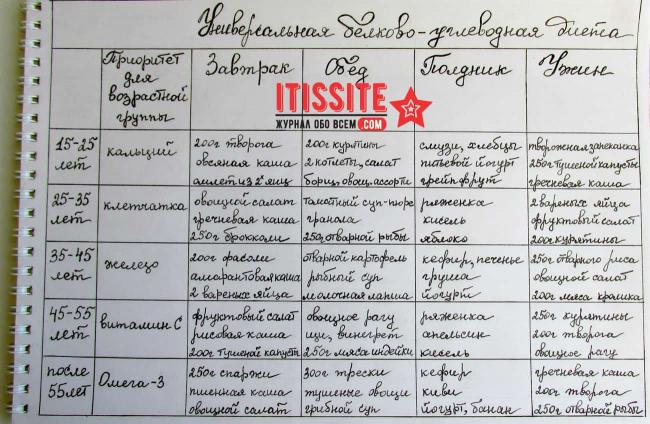 Универсальная белково-углеводная диета
Приоритет для возрастной группы
Завтрак
Обед
Полдник
Ужин
ITISSITE
ЖУРНАЛ ОБО ВСЕМ .COM
15-25 лет
кальций
200г творога
овсяная каша
омлет из 2х яиц
200г курятины
2 котлеты, салат
борщ, овощ. ассорти
смузи, хлебцы
питьевой йогурт
грейпфрут
творожная запеканка
250г тушеной капусты
гречневая каша
25-35 лет
клетчатка
овощной салат
гречневая каша
250г брокколи
томатный суп-пюре
гранола
250г отварной рыбы
ряженка
кисель
яблоко
2 вареных яйца
фруктовый салат
200г курятины
35-45 лет
железо
200г фасоли
амарантовая каша
2 вареных яйца
отварной картофель
рыбный суп
молочная лапша
кефир, печенье
груша
йогурт
250г отварного риса
овощной салат
200г мяса кролика
45-55 лет
витамин С
фруктовый салат
рисовая каша
200г тушеной капусты
овощное рагу
щи, винегрет
250г мяса индейки
ряженка
апельсин
кисель
250г курятины
200г творога
овощное рагу
после 55 лет
Омега-3
250г спаржи
пшенная каша
овощной салат
300г трески
тушеные овощи
грибной суп
кефир
киви
йогурт, банан
гречневая каша
200г творога
250г отварной рыбы